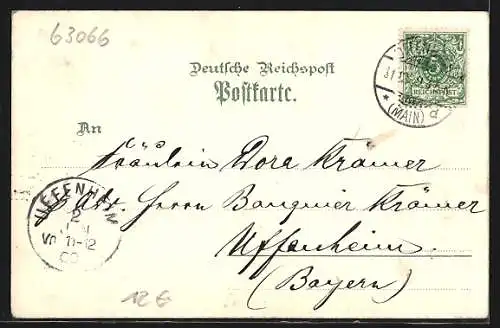 63066
Deutsche Reichspost
Postkarte.
An
Fräulein Dora Krämer
Adr. Herrn Banquier Krämer
Uffenheim
(Bayern)
REICHSPOST
* (MAIN) d
UFFENHEIM
2
11-12
12 €